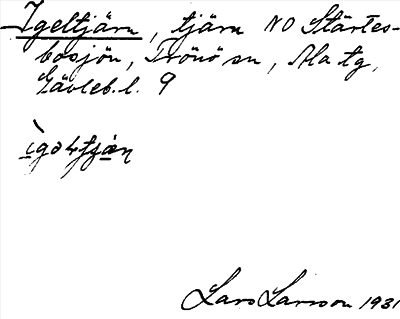 Igeltjärn, tjärn NO Stärtes-
bosjön, Trönö sn, Ala tg,
Gävleb.l. 9
Lars Larsson 1931